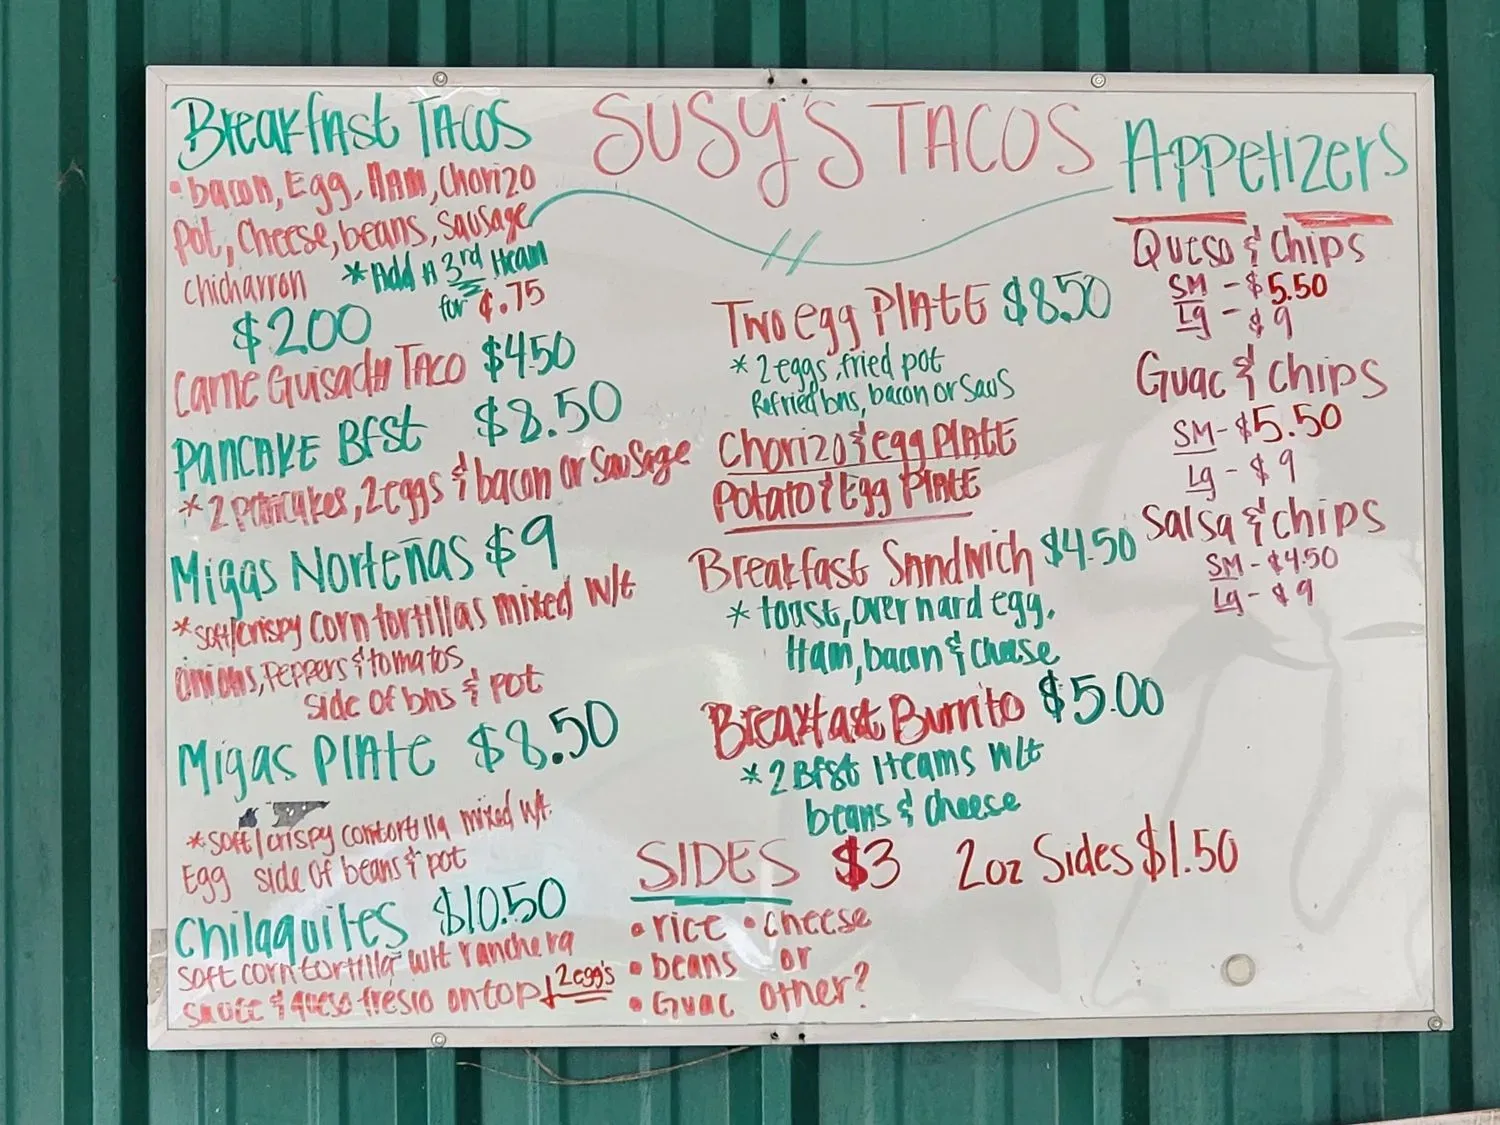 SUSY'S TACOS
Breakfast TACOS
• bacon, Egg, HAM, Chorizo
Pot, Cheese, beans, sausage
chicharron
* Add A 3rd Iteam
for ¢.75
$2.00
Carne Guisada TACO $4.50
PANCAKE BFST $8.50
* 2 pancakes, 2 eggs & bacon or Sausage
Migas Norteñas $9
* soft/crispy corn tortillas mixed w/t
onions, Peppers & tomatos
side of bns & pot
Migas PLAte $8.50
* soft/crispy corntortilla mixed w/t.
Egg side of beans & pot
Chilaquiles $10.50
soft corn tortilla wit ranchera
sauce & queso fresio ontop + 2egg's
Two egg PLAtE $8.50
* 2 eggs, fried pot
Refried bns, bacon or Saus
Chorizo & egg PLAtE
Potato & Egg PLAtE
Breakfast Sandwich $4.50
* toast, over hard egg,
Ham, bacon & chease
Breakfast Burrito $5.00
* 2 Bfst Iteams W/t
beans & cheese
SIDES $3 2oz Sides $1.50
• rice • cheese
• beans or
• Guac other?
Appetizers
Queso & Chips
SM - $5.50
Lg - $9
Guac & chips
SM - $5.50
Lg - $9
Salsa & chips
SM - $4.50
Lg - $9